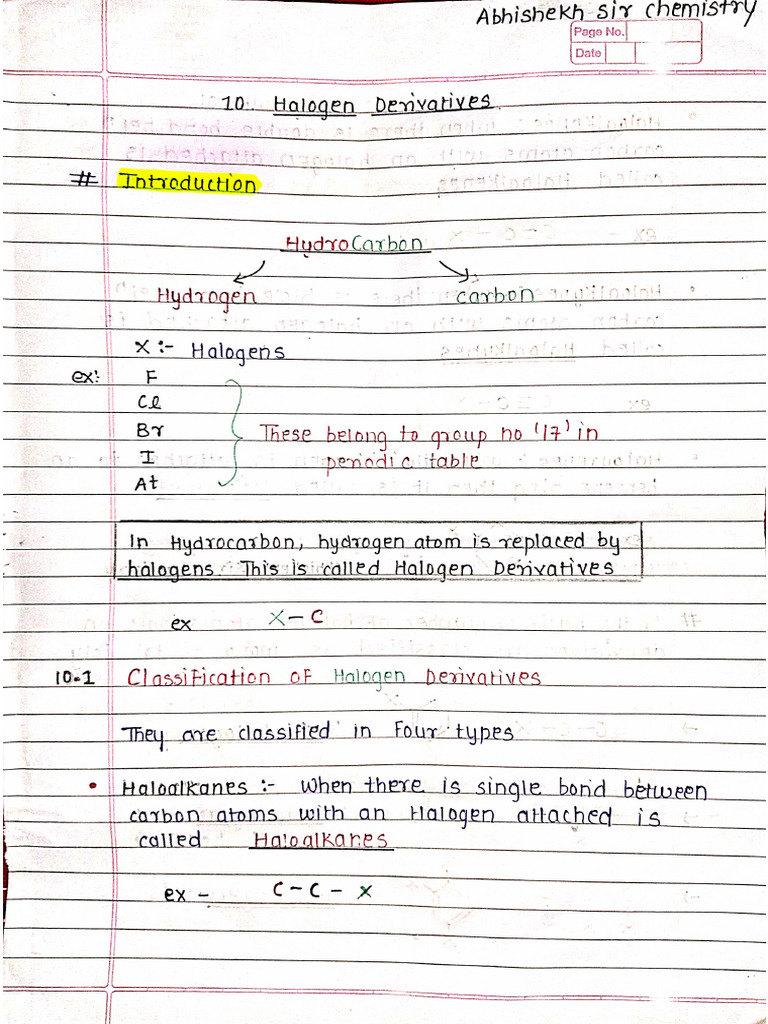 Abhishekh sir chemistry
Page No.
Date
10. Halogen Derivatives
# Introduction
HydroCarbon
Hydrogen carbon
X :- Halogens
ex: F
Cl
Br
I
At
These belong to group no '17' in
periodic table
In Hydrocarbon, hydrogen atom is replaced by
halogens. This is called Halogen Derivatives
ex X – C
10.1 Classification of Halogen Derivatives
They are classified in Four types
• Haloalkanes :- When there is single bond between
carbon atoms with an Halogen attached is
called Haloalkanes
ex – C – C – X